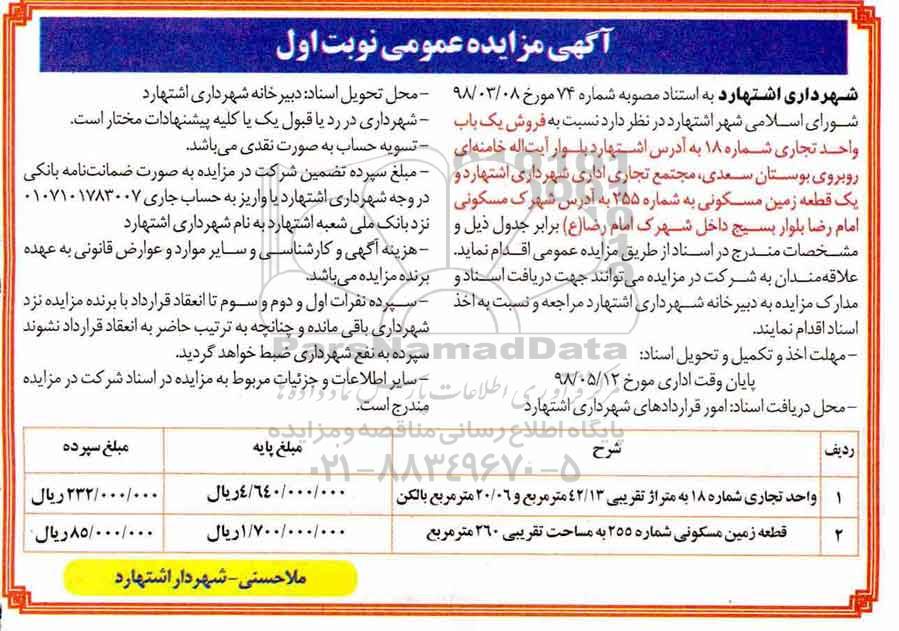 آگهی مزایده عمومی نوبت اول
شهرداری اشتهارد به استناد مصوبه شماره ۷۴ مورخ ۹۸/۰۳/۰۸
شورای اسلامی شهر اشتهارد در نظر دارد نسبت به فروش یک باب
واحد تجاری شماره ۱۸ به آدرس اشتهارد بلوار آیت‌اله خامنه‌ای
روبروی بوستان سعدی، مجتمع تجاری اداری شهرداری اشتهارد و
یک قطعه زمین مسکونی به شماره ۲۵۵ به آدرس شهرک مسکونی
امام رضا بلوار بسیج داخل شهرک امام رضا(ع) برابر جدول ذیل و
مشخصات مندرج در اسناد از طریق مزایده عمومی اقدام نماید.
علاقه‌مندان به شرکت در مزایده می‌توانند جهت دریافت اسناد و
مدارک مزایده به دبیرخانه شهرداری اشتهارد مراجعه و نسبت به اخذ
اسناد اقدام نمایند.
- مهلت اخذ و تکمیل و تحویل اسناد:
پایان وقت اداری مورخ ۹۸/۰۵/۱۲
- محل دریافت اسناد: امور قراردادهای شهرداری اشتهارد
- محل تحویل اسناد: دبیرخانه شهرداری اشتهارد
- شهرداری در رد یا قبول یک یا کلیه پیشنهادات مختار است.
- تسویه حساب به صورت نقدی می‌باشد.
- مبلغ سپرده تضمین شرکت در مزایده به صورت ضمانت‌نامه بانکی
در وجه شهرداری اشتهارد یا واریز به حساب جاری ۰۱۰۷۱۰۱۷۸۳۰۰۷
نزد بانک ملی شعبه اشتهارد به نام شهرداری اشتهارد
- هزینه آگهی و کارشناسی و سایر موارد و عوارض قانونی به عهده
برنده مزایده می‌باشد.
- سپرده نفرات اول و دوم و سوم تا انعقاد قرارداد با برنده مزایده نزد
شهرداری باقی مانده و چنانچه به ترتیب حاضر به انعقاد قرارداد نشوند
سپرده به نفع شهرداری ضبط خواهد گردید.
- سایر اطلاعات و جزئیات مربوط به مزایده در اسناد شرکت در مزایده
مندرج است.
ParsNamadData
مرکز فرآوری اطلاعات پارس نماد داده‌ها
پایگاه اطلاع رسانی مناقصه و مزایده
۰۲۱-۸۸۳۴۹۶۷۰-۵
ردیف شرح مبلغ پایه مبلغ سپرده
۱ واحد تجاری شماره ۱۸ به متراژ تقریبی ۴۲/۱۳ مترمربع و ۲۰/۰۶ مترمربع بالکن ۴/۶۴۰/۰۰۰/۰۰۰ریال ۲۳۲/۰۰۰/۰۰۰ریال
۲ قطعه زمین مسکونی شماره ۲۵۵ به مساحت تقریبی ۲۶۰ مترمربع ۱/۷۰۰/۰۰۰/۰۰۰ریال ۸۵/۰۰۰/۰۰۰ریال
ملاحسنی - شهردار اشتهارد